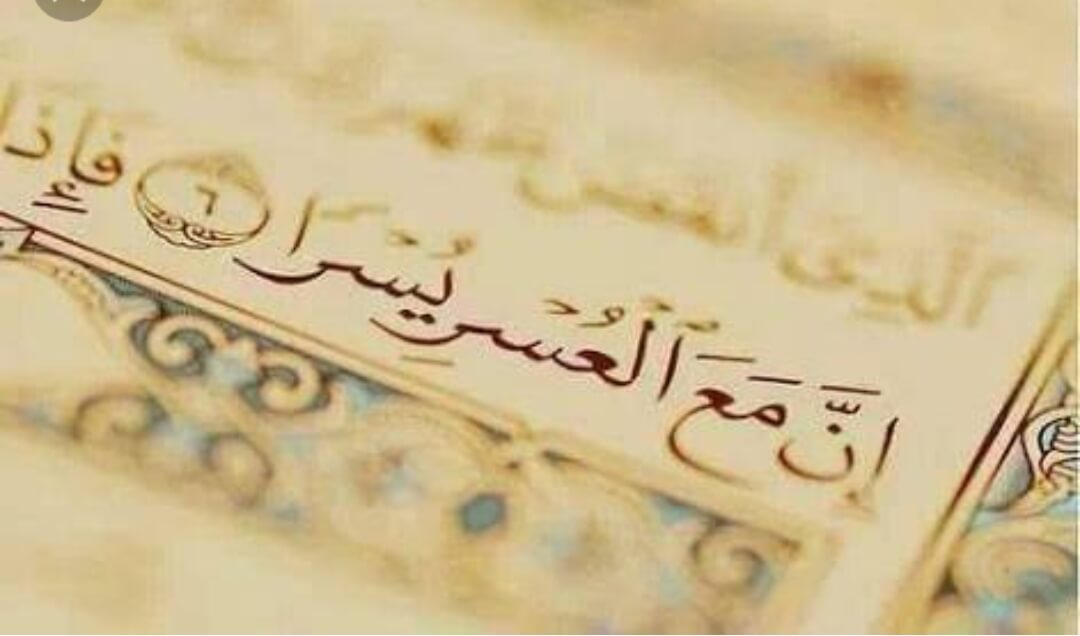 إِنَّ مَعَ ٱلْعُسْرِ يُسْرًا ٦ فَإِذَا